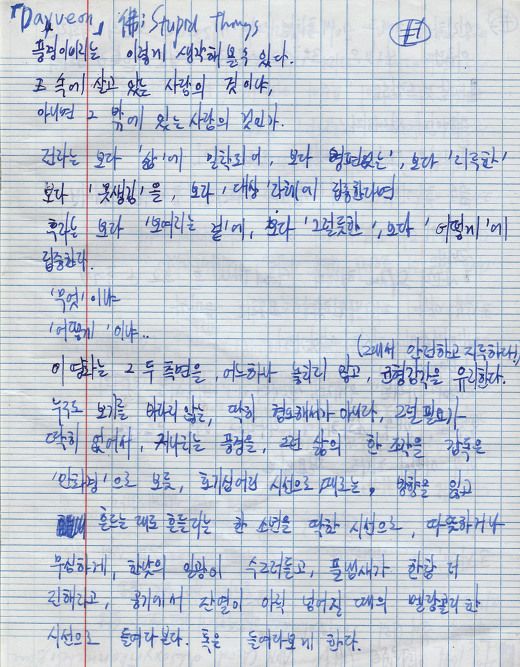 「Dayveon」 佛; Stupid Things
#1
풍경이라는 이렇게 생각해 볼 수 있다.
그 속에 살고 있는 사람의 것이냐,
아니면 그 밖에 있는 사람의 것인가.
전자는 보다 '삶'에 밀착되어, 보다 '형편없는', 보다 '지루한'
보다 '못생김'을, 보다 '대상' 자체에 집중한다면
후자는 보다 '보여지는 것'에, 보다 '그럴듯한', 보다 '어떻게'에
집중한다.
'무엇'이냐
'어떻게'이냐..
(그래서 안전하고 지루하다)
이 영화는 그 두 측면을, 어느하나 놓치지 않고, 균형감각을 유지한다.
누구도 보기를 바라지 않는, 딱히 혐오해서가 아니라, 그럴 필요가
딱히 없어서, 지나치는 풍경을, 그런 삶의 한 조각을 감독은
'만화경'으로 보듯, 호기심어린 시선으로, 때로는, 방향을 잃고
흐르는 대로 흔들리는 한 소년을 딱한 시선으로, 따뜻하거나
무심하게, 한낮의 일광이 수그러들고, 풀냄새가 한창 더
진해지고, 공기에서 잔열이 아직 남아질 때의 멜랑꼴리한
시선으로 들여다본다. 혹은 들여다보게 한다.